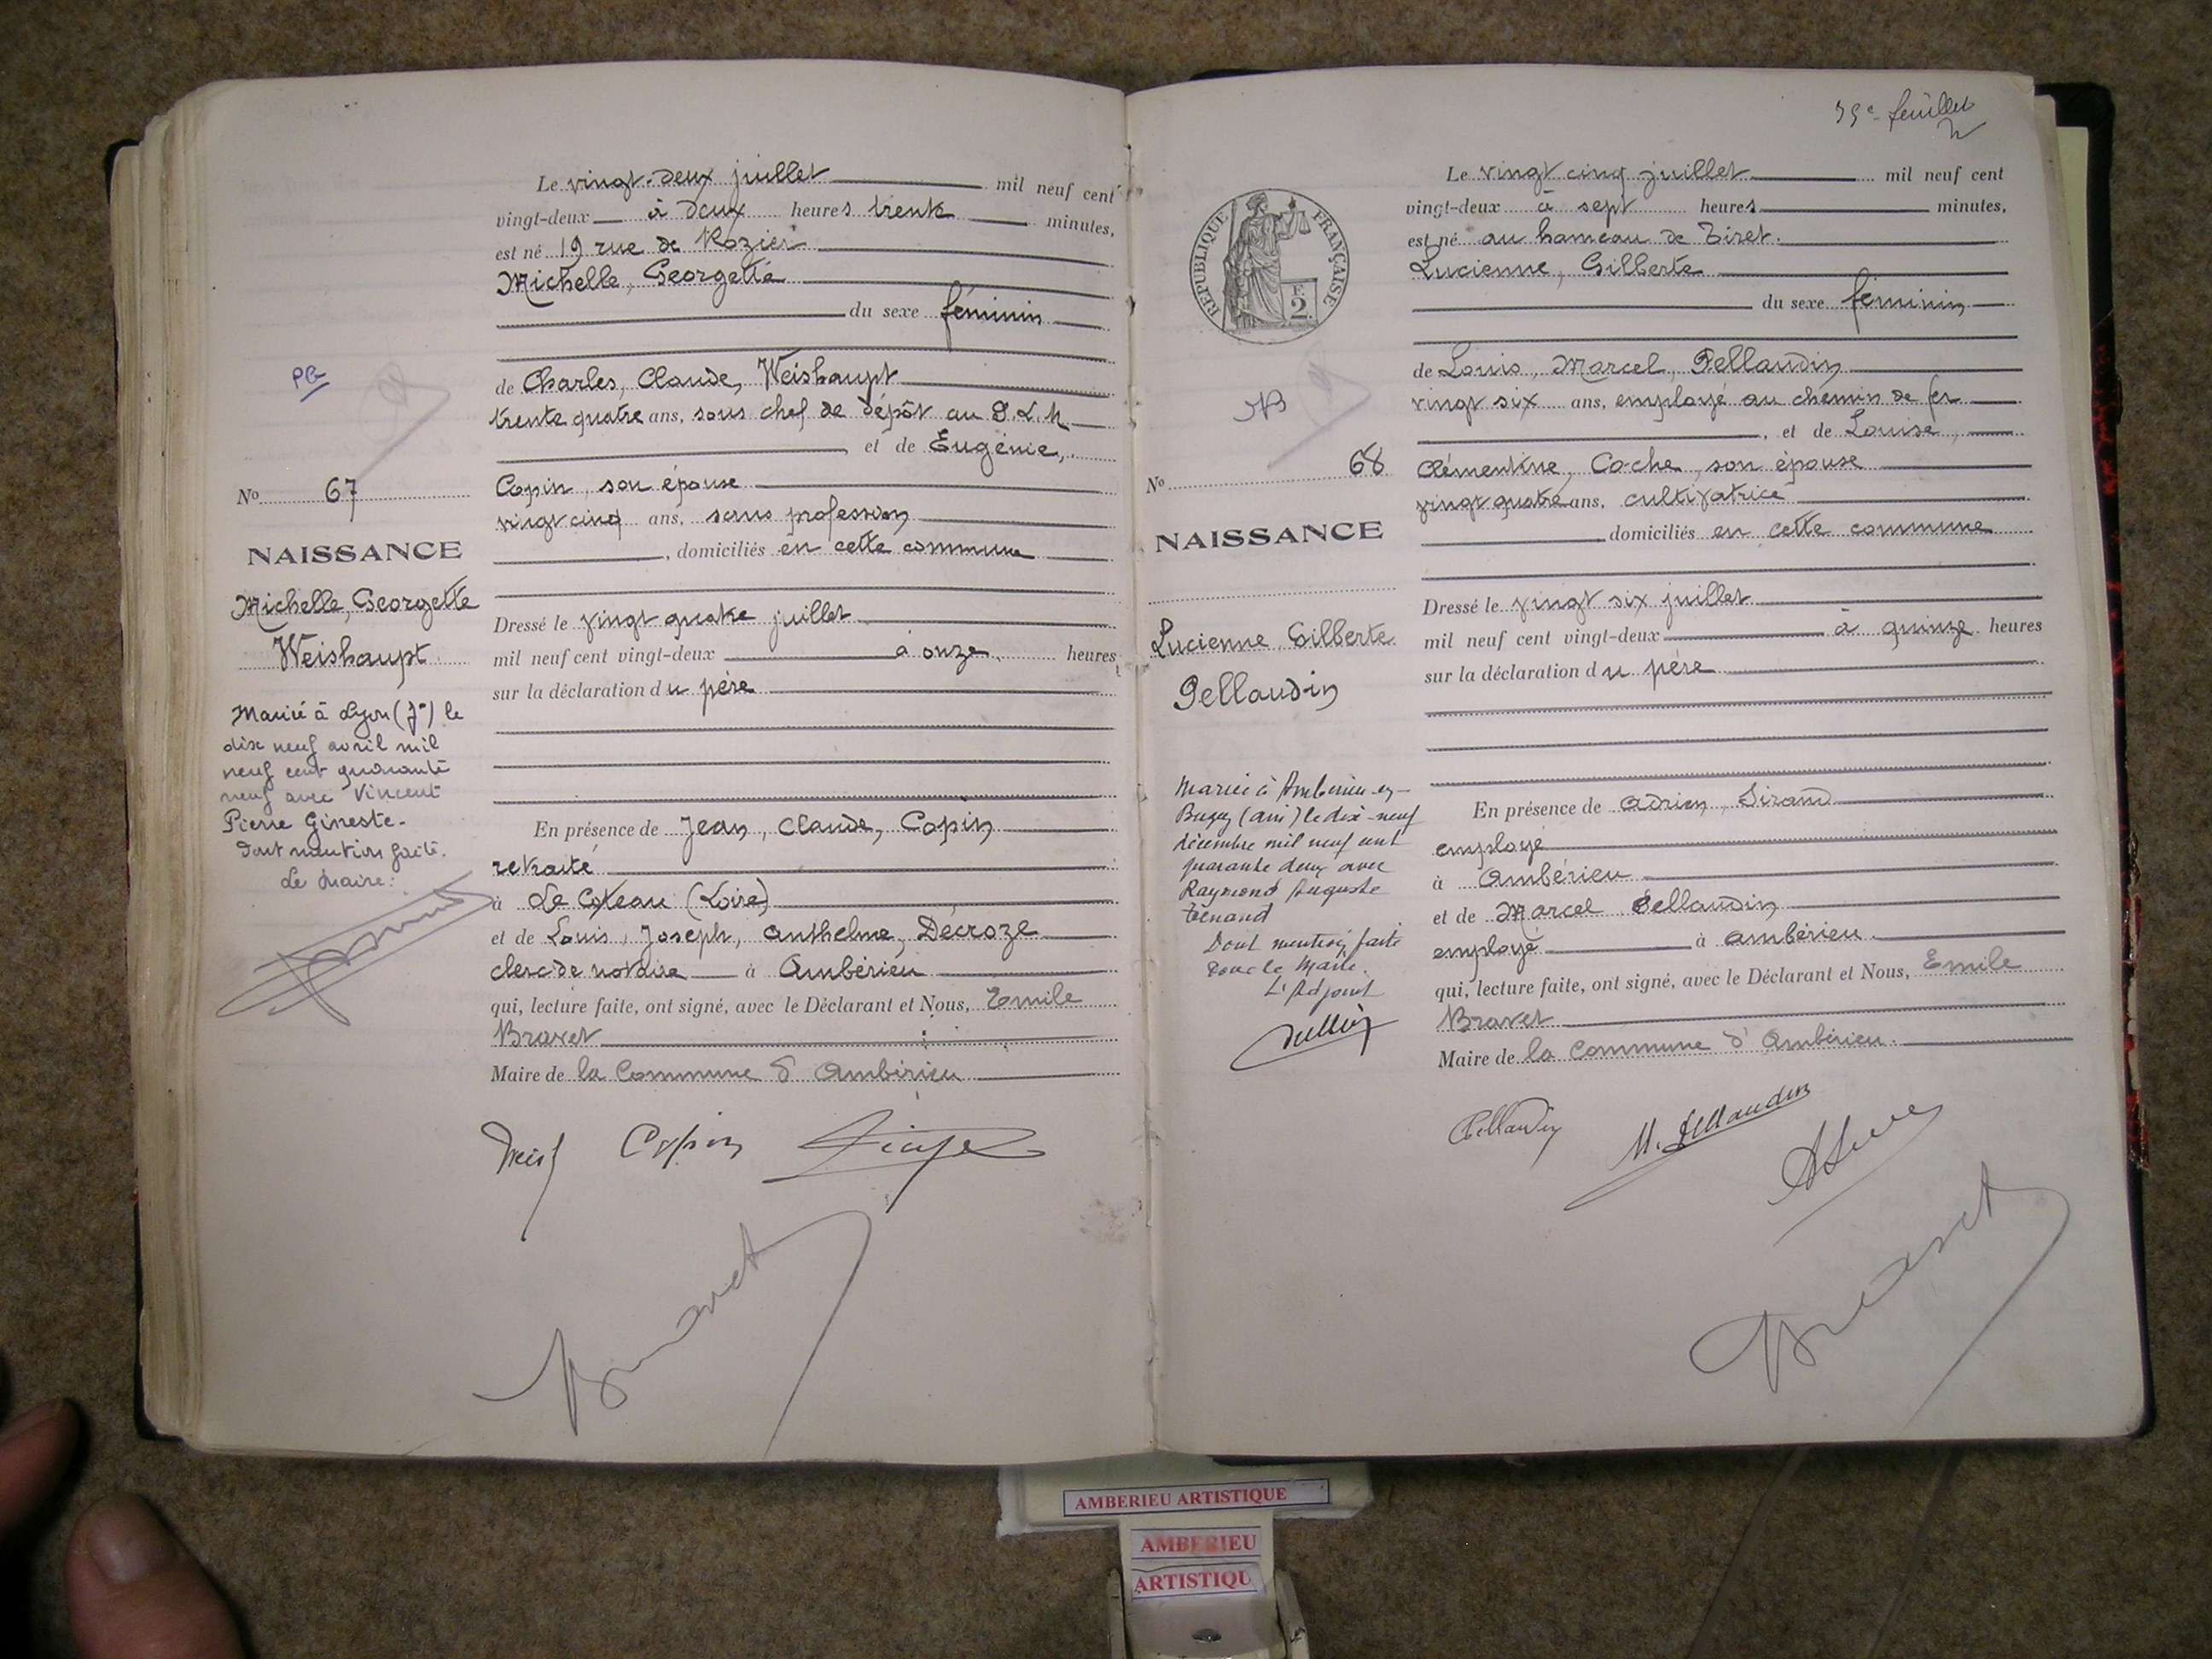 Le vingt-deux juillet mil neuf cent
vingt-deux à deux heures trente minutes,
est né 19 rue de Rozier
Michelle, Georgette
du sexe féminin
PG
de Charles, Claude, Weishaupt
trente quatre ans, sous chef de dépôt au P.L.M
et de Eugénie,
No 67
Copin, son épouse
vingt cinq ans, sans profession
, domiciliés en cette commune
NAISSANCE
Michelle, Georgette
Weishaupt
Dressé le vingt quatre juillet
mil neuf cent vingt-deux à onze heures
sur la déclaration du père
Marié à Lyon (7e) le
dix neuf avril mil
neuf cent quarante
neuf avec Vincent
Pierre Gineste.
Dont mention faite.
Le Maire:
En présence de Jean, Claude, Copin
retraité
à Le Coteau (Loire)
et de Louis, Joseph, Anthelme, Décroze
clerc de notaire à Ambérieu
qui, lecture faite, ont signé, avec le Déclarant et Nous, Emile
Bravet
Maire de la Commune d'Ambérieu
Weis Copin
Bravet
39e feuillet
RÉPUBLIQUE FRANÇAISE
F.
2.
Le vingt cinq juillet mil neuf cent
vingt-deux à sept heures minutes,
est né au hameau de Tiret.
Lucienne, Gilberte
du sexe féminin
de Louis, Marcel, Pellaudin
vingt six ans, employé au chemin de fer
, et de Louise,
No 68
Clémentine, Coche, son épouse
vingt quatre ans, cultivatrice
domiciliés en cette commune
NAISSANCE
Lucienne, Gilberte
Pellaudin
Dressé le vingt six juillet
mil neuf cent vingt-deux à quinze heures
sur la déclaration du père
Mariée à Ambérieu-en-
Bugey (Ain) le dix-neuf
décembre mil neuf cent
quarante deux avec
Raymond Auguste
Tenand
Dont mention faite
Pour le Maire.
L'Adjoint
En présence de Adrien, Sirand
employé
à Ambérieu
et de Marcel Pellaudin
employé à Ambérieu
qui, lecture faite, ont signé, avec le Déclarant et Nous, Emile
Bravet
Maire de la Commune d'Ambérieu.
Pellaudin M. Pellaudin
Bravet
AMBERIEU ARTISTIQUE
AMBERIEU
ARTISTIQU